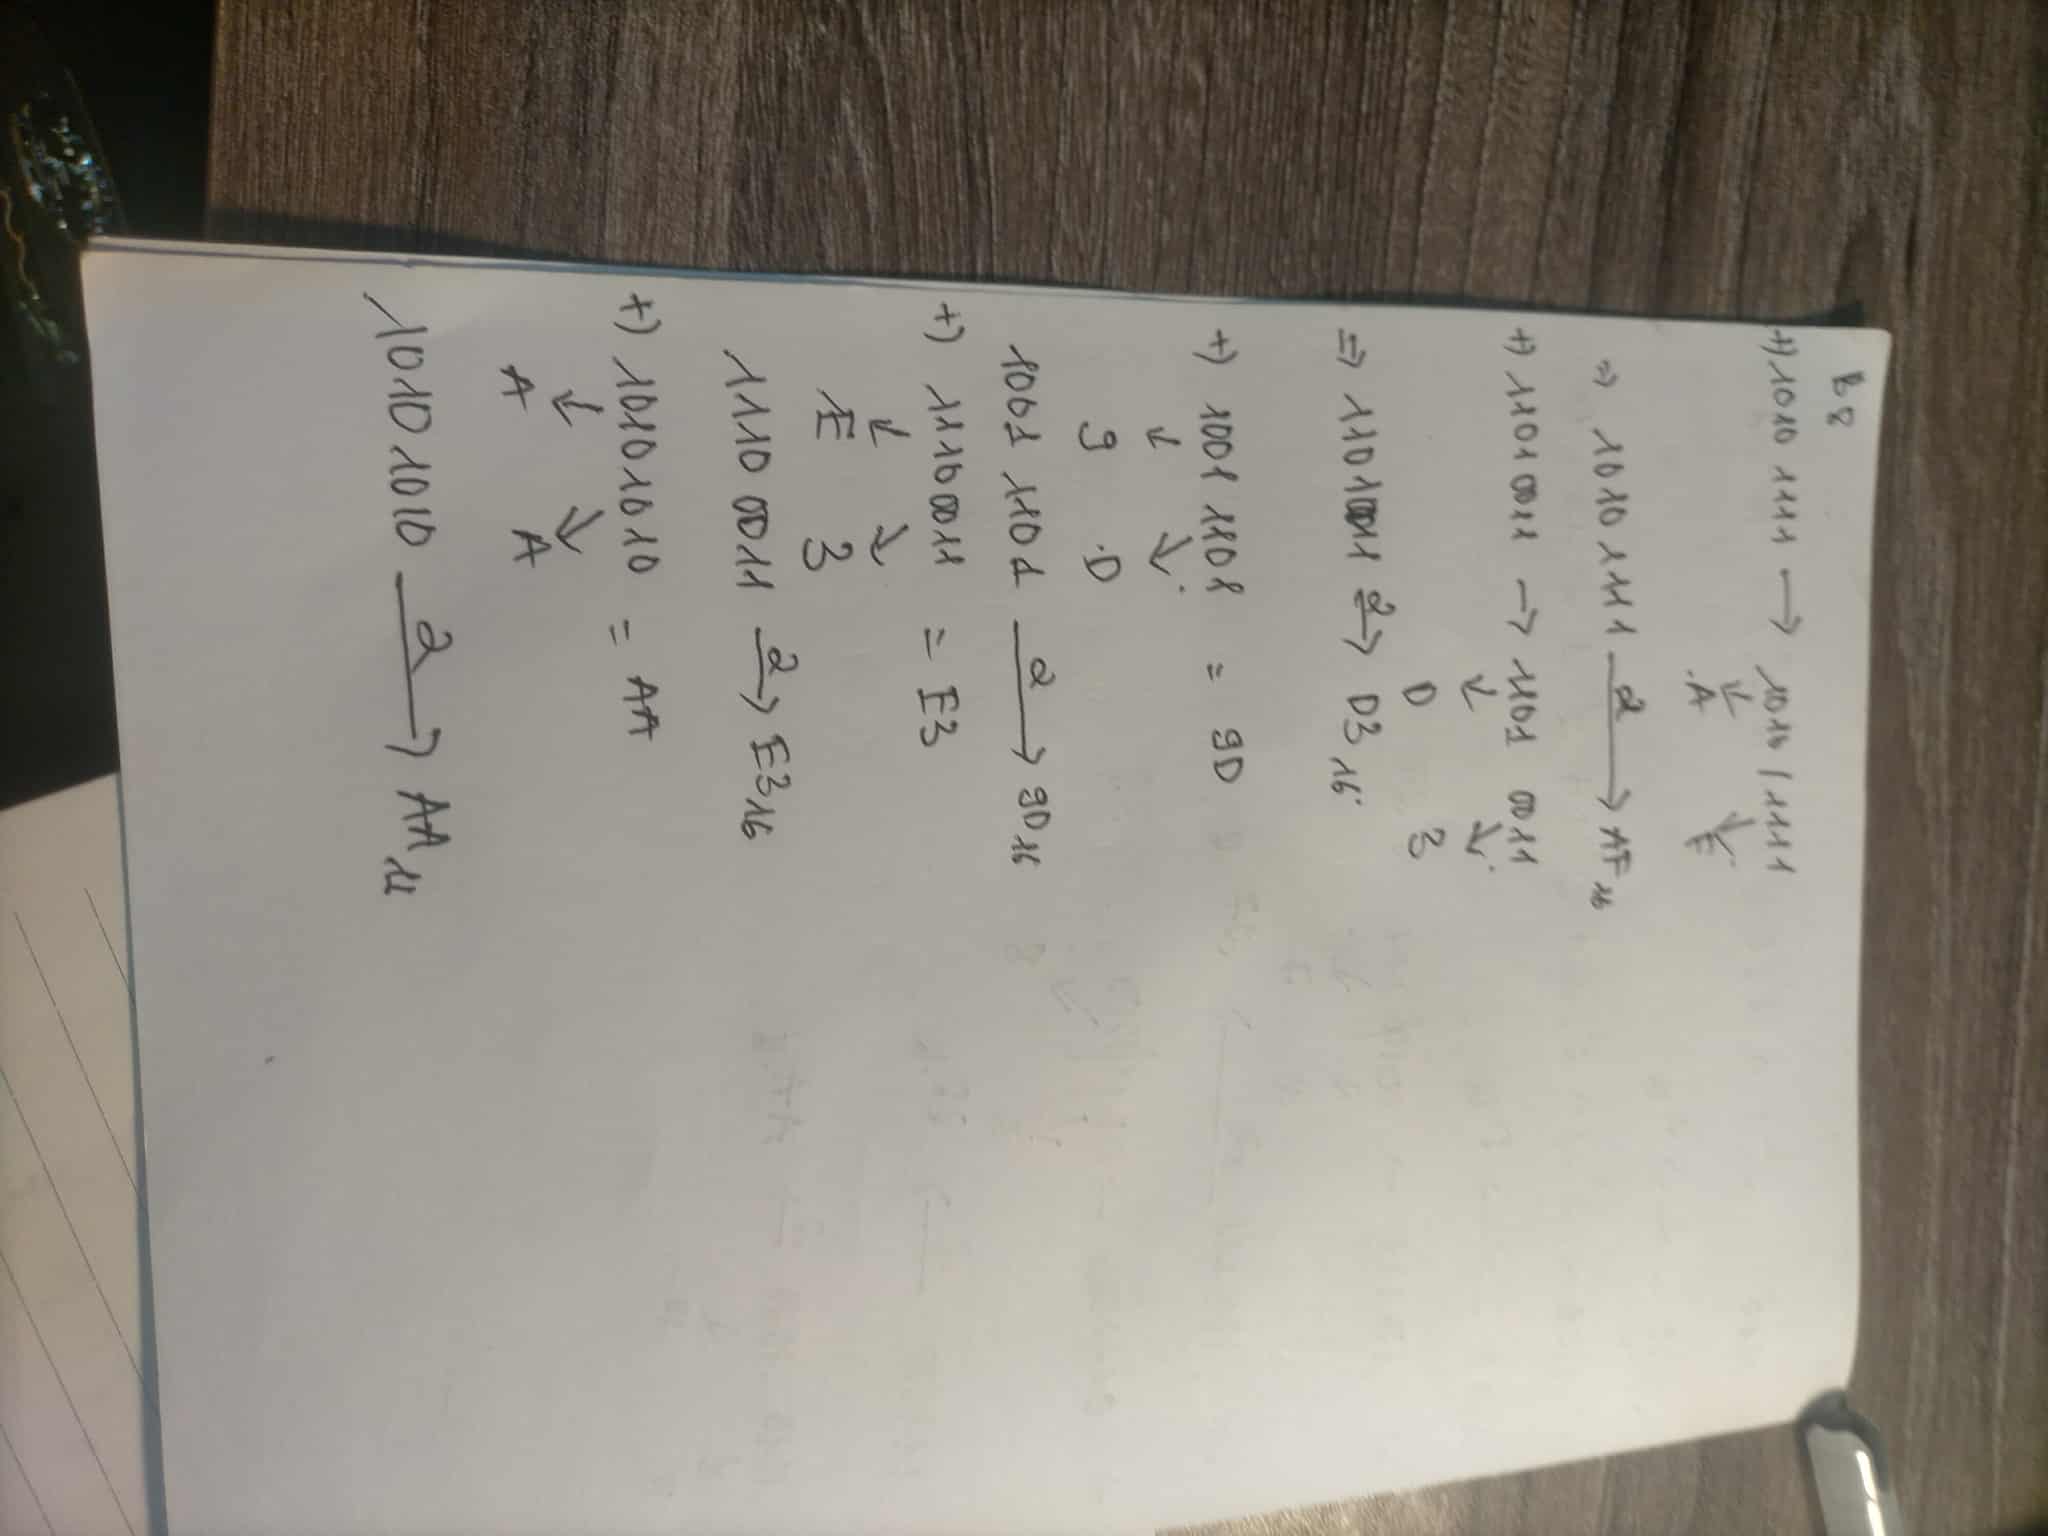 B8
+) 1010 1111 → 1010 / 1111
↓ ↓
A F
⇒ 1010 1111 2→ AF16
+) 1101 0011 → 1101 0011
↓ ↓
D 3
⇒ 1101 0011 2→ D3 16
+) 1001 1101 = 9D
↓ ↓
9 D
1001 1101 2→ 9D16
+) 1110 0011 = E3
↓ ↓
E 3
1110 0011 2→ E316
+) 1010 1010 = AA
↓ ↓
A A
1010 1010 2→ AA16